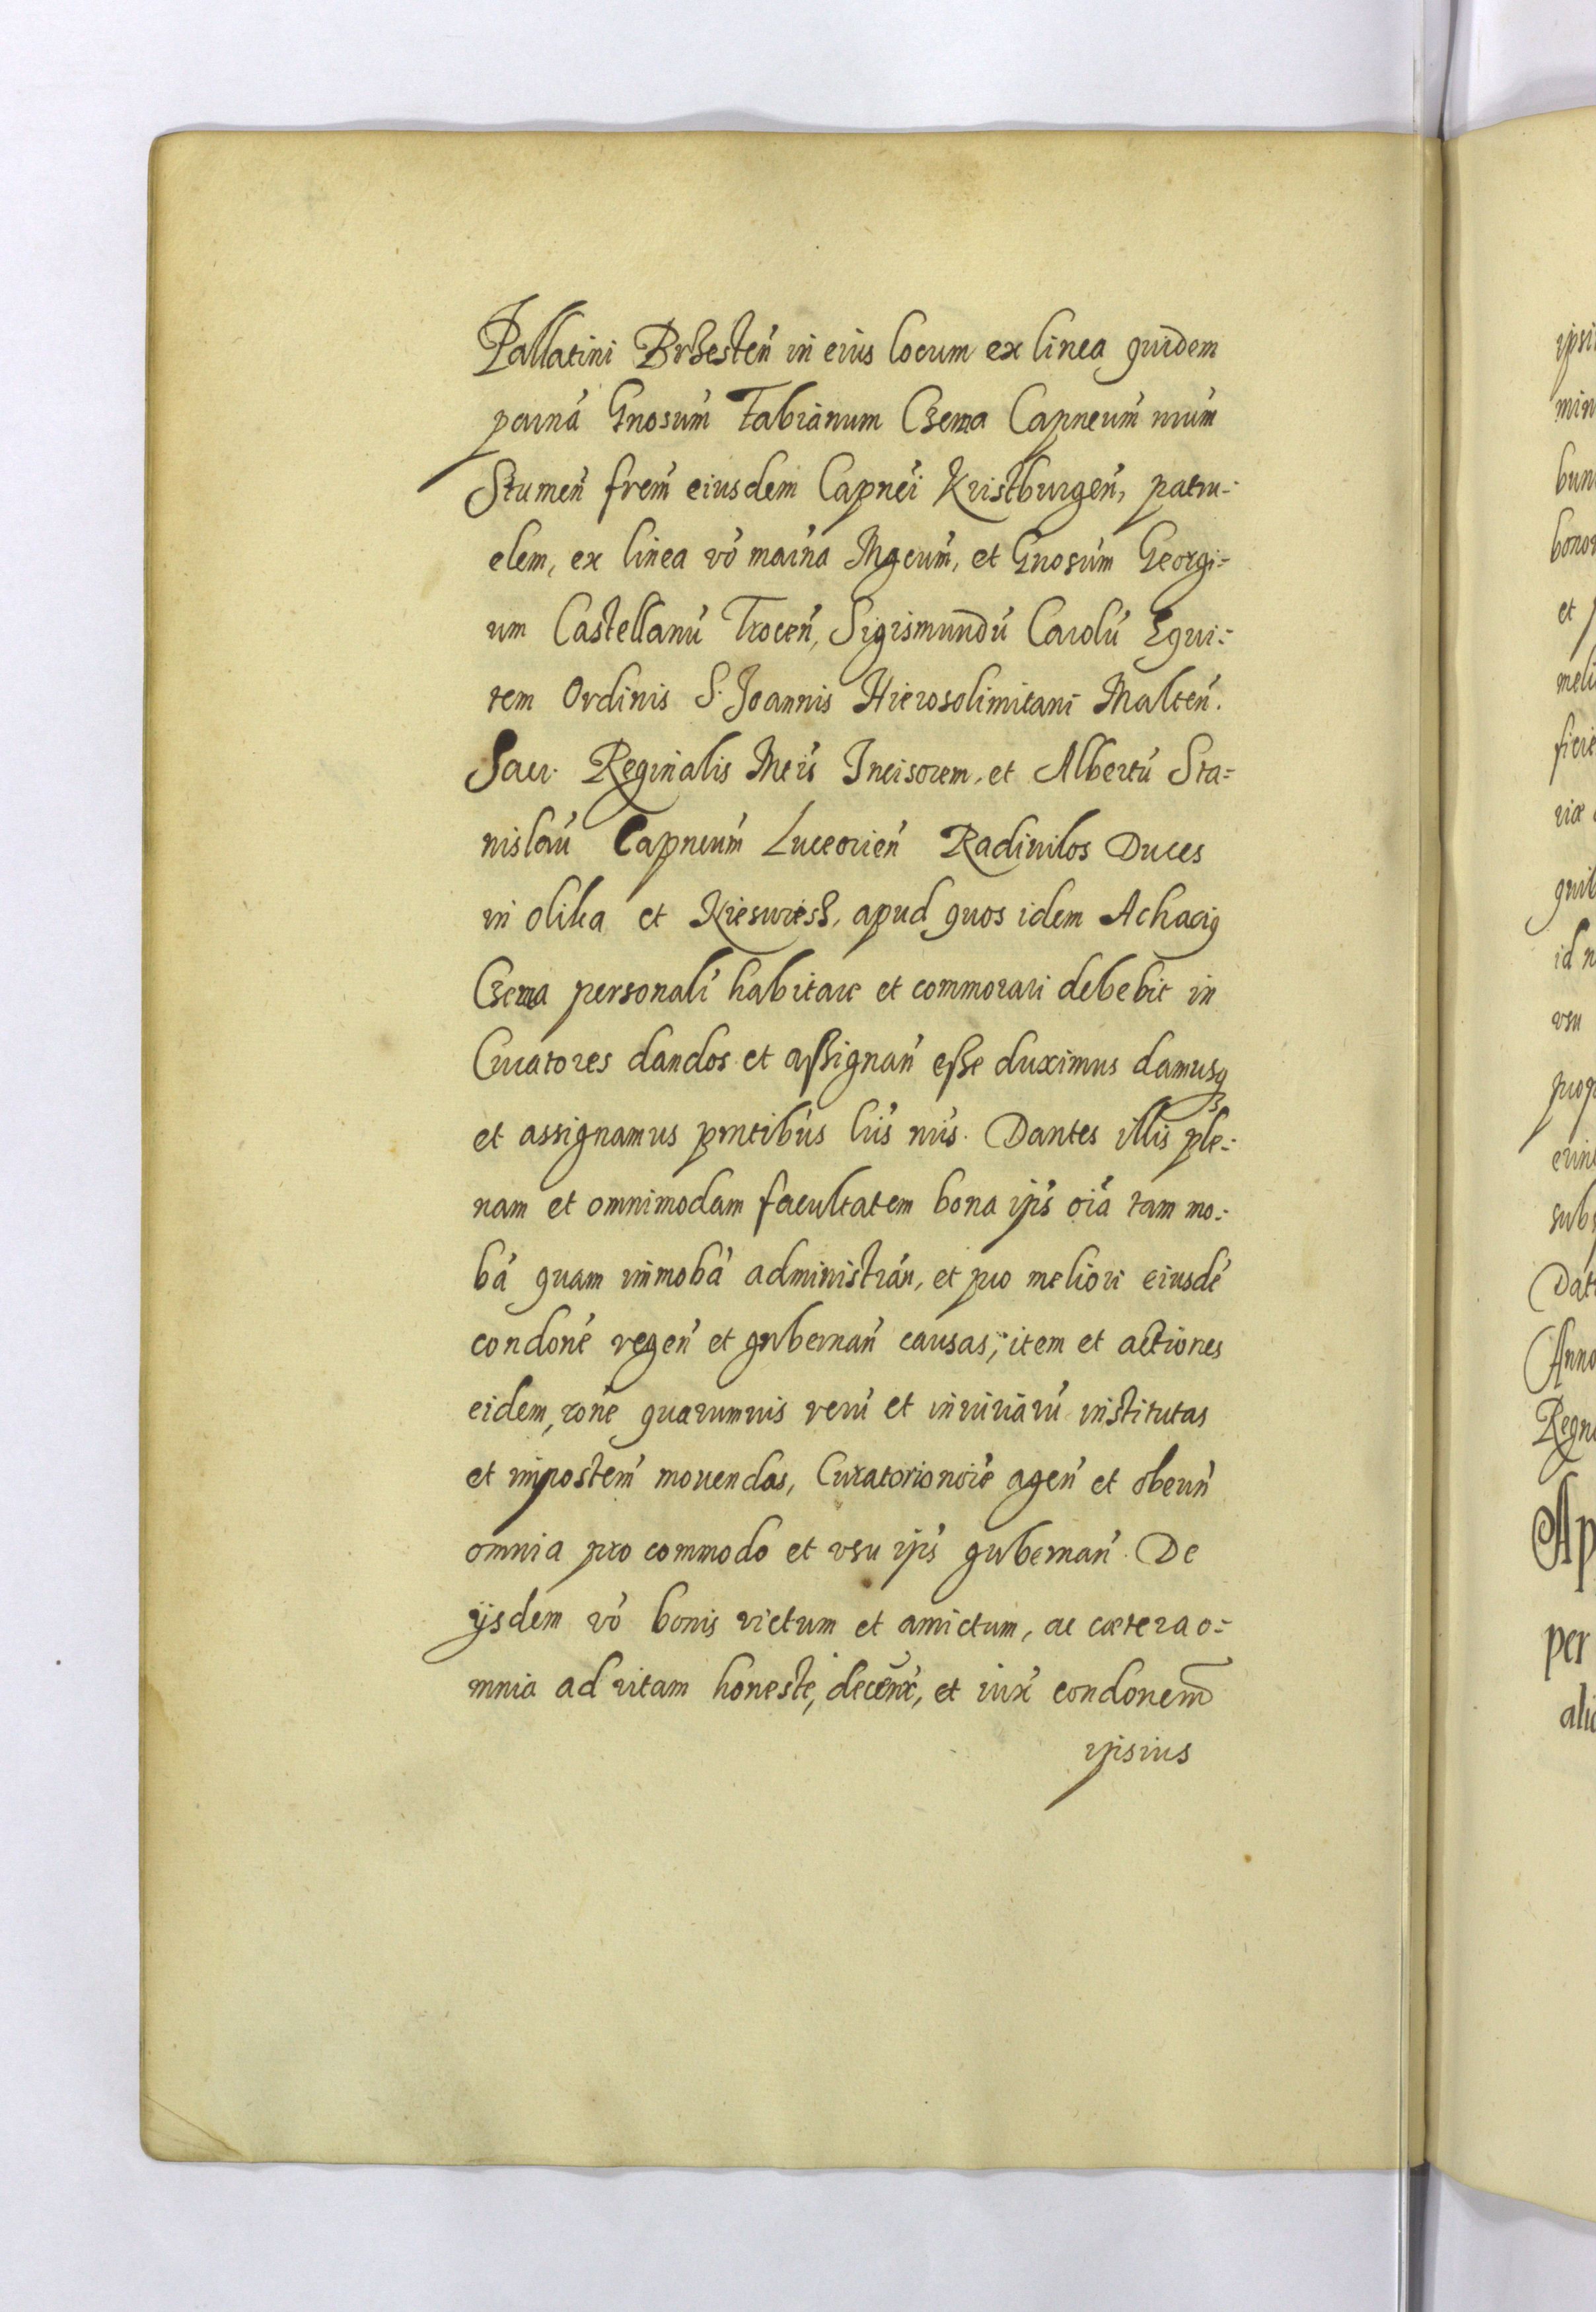 Pallatini Brzesteń in eius locum ex linea quidem
parná Gnosum̃ Fabianum Czema Capneum̃ nrum̃
Stumeñ frem̃ eiusdem Capnei Kristburgeñ, patru-
elem, ex linea vó marńa Mgcum̃, et Gnosum̃ Georgi-
um Castellanú Troceñ, Sigismundú Carolú Equi-
tem Ordinis S. Joannis Hierosolimitani Malteñ.
Sacr. Reginalis Mtis Incisorem, et Albertú Sta-
nislaú Capneum̃ Luceorień Radiuilos Duces
in Olika et Niesuiesz, apud quos idem Achacig
Czema personalr̃ habitare et commorari debebit in
Curatores dandos et assignań esse duximus damusq
et assignamus pntibus lris nris. Dantes illis ple-
nam et omnimodam facultatem bona ipś oiá tam mo-
bá quam immobá administrań, et pro meliori eiusdé
condoné regeń et gubernań causas, item et actiones
eidem, roné quarumuis rerú et iniuriarú institutas
et impostem̃ mouendas, Curatorio noie ageń et obeuń
omnia pro commodo et vsu ipś gubernań. De
ijsdem vó bonis victum et amictum, ac cætera o-
mnia ad vitam honeste, decent̃, et iux̃ condonem
ipsius
ipsi
min
bun
bonor
et
meli
fieri
riæ
quib
id n
vsu
prop
subs
Dat
Anno
Regn
Ap
per
ali